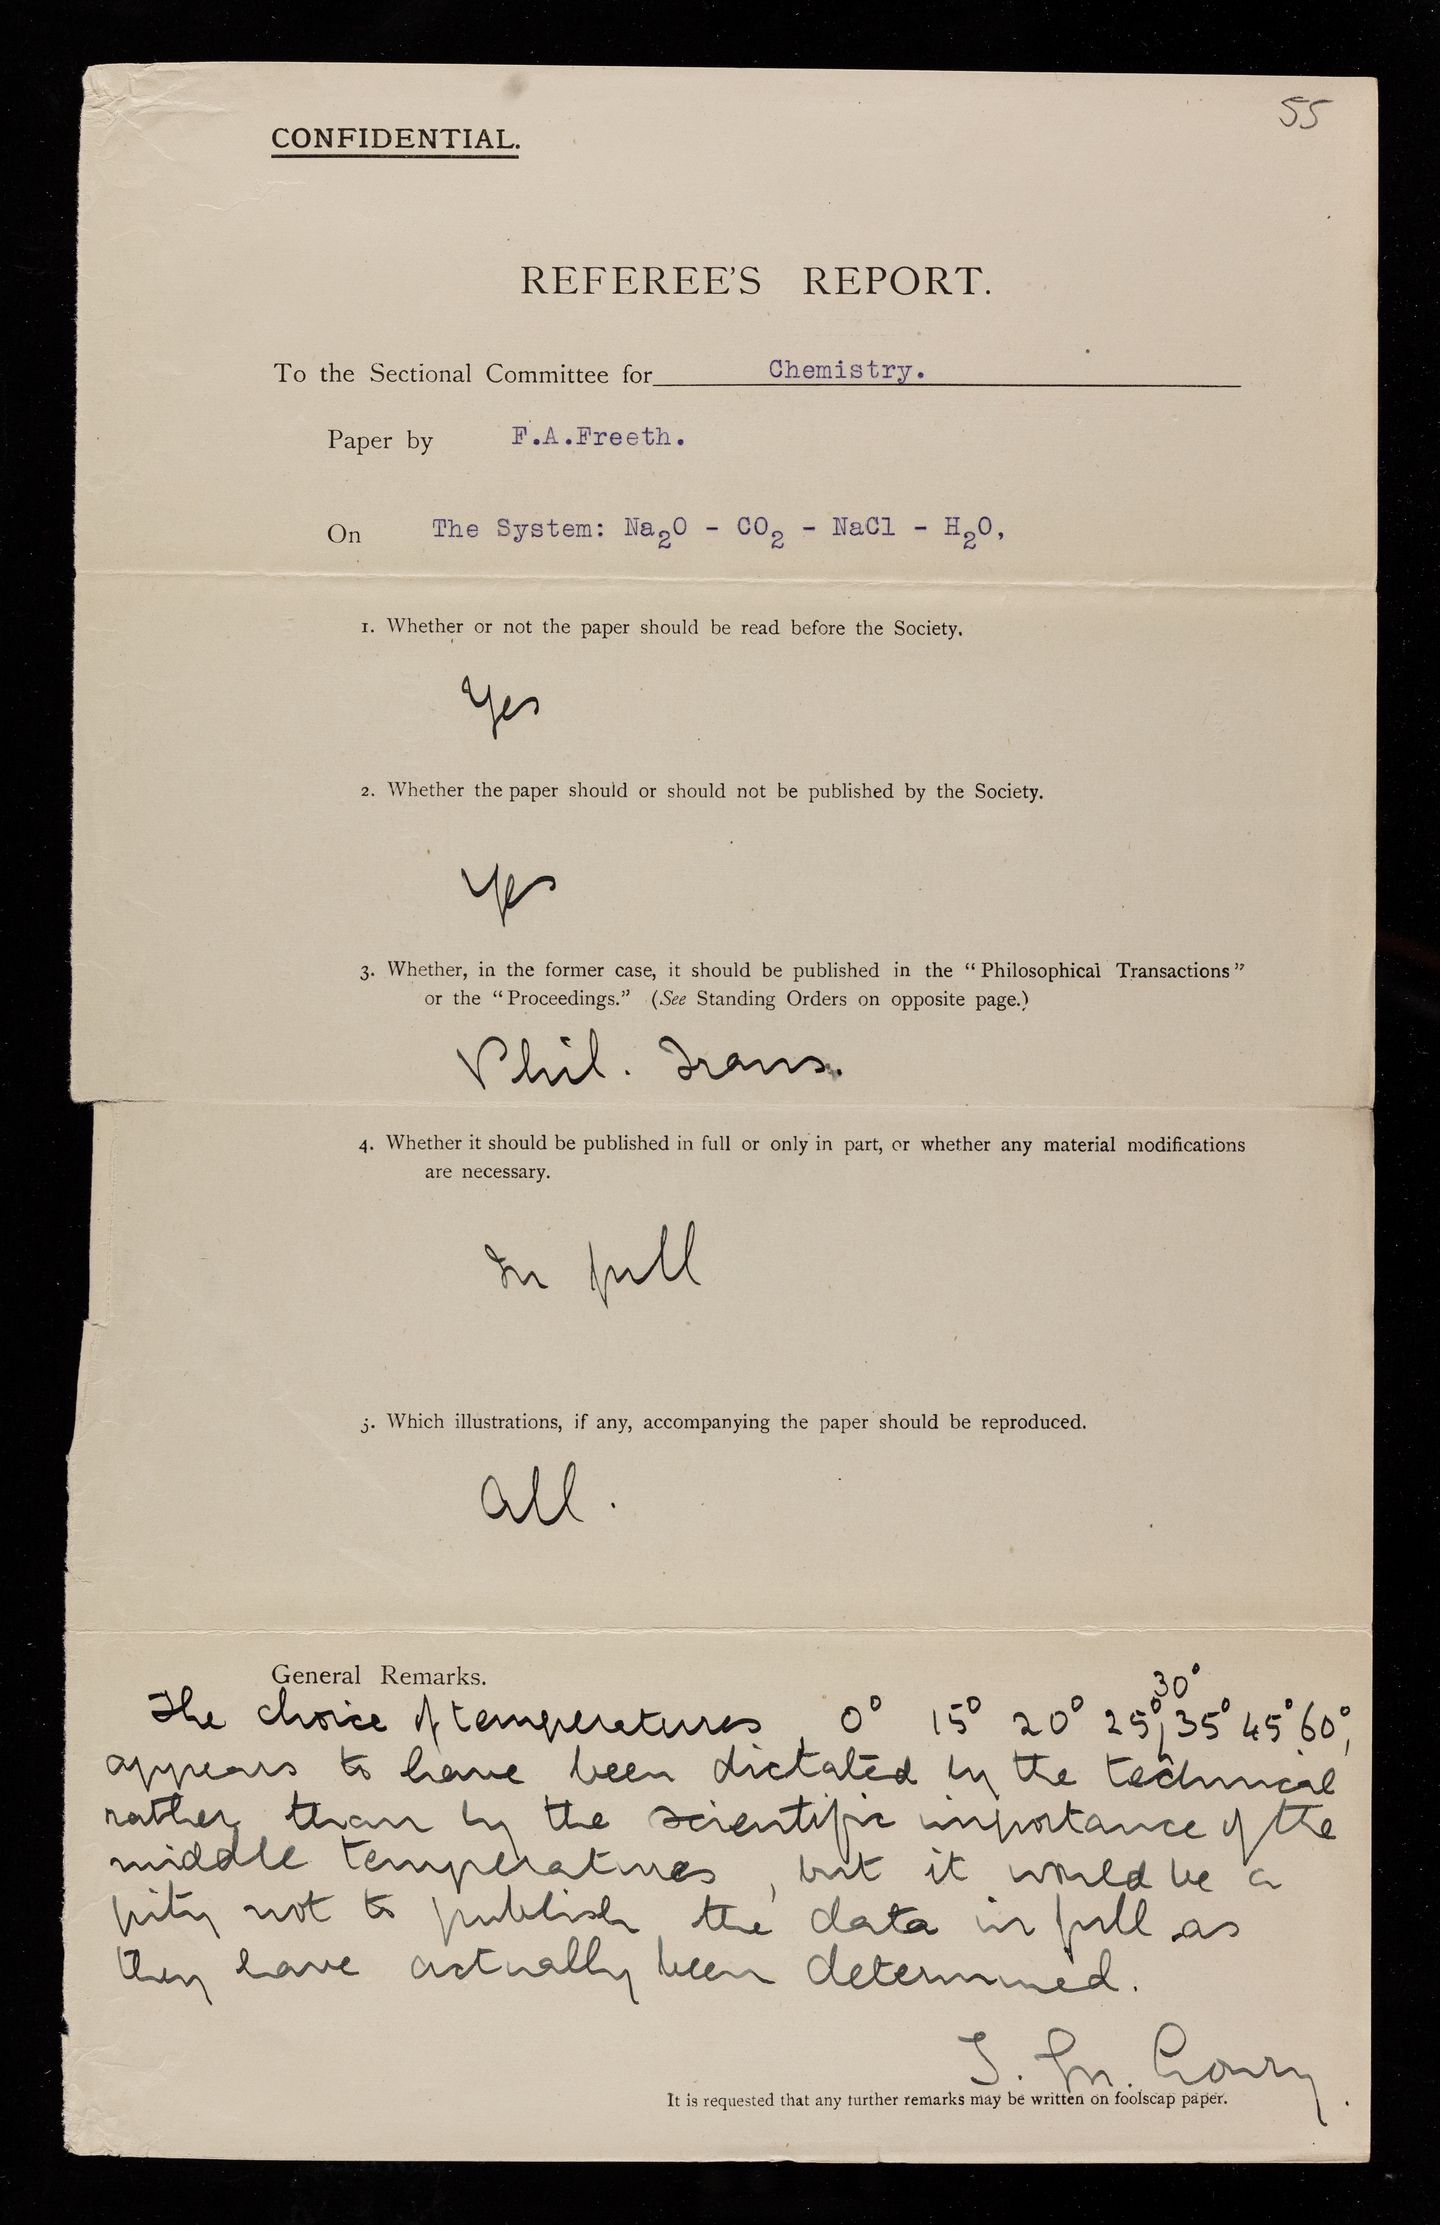 55
CONFIDENTIAL.
REFEREE'S REPORT.
To the Sectional Committee for Chemistry.
Paper by F.A.Freeth.
On The System: Na₂O - CO₂ - NaCl - H₂O,
1. Whether or not the paper should be read before the Society.
Yes
2. Whether the paper should or should not be published by the Society.
Yes
3. Whether, in the former case, it should be published in the "Philosophical Transactions"
or the "Proceedings." (See Standing Orders on opposite page.)
Phil. Trans.
4. Whether it should be published in full or only in part, or whether any material modifications
are necessary.
In full
5. Which illustrations, if any, accompanying the paper should be reproduced.
All.
General Remarks.
30°
The choice of temperatures, 0° 15° 20° 25°, 35° 45° 60°,
appears to have been dictated by the technical
rather than by the scientific importance of the
middle temperatures, but it would be a
pity not to publish the data in full as
they have actually been determined.
T. M. Lowry.
It is requested that any further remarks may be written on foolscap paper.